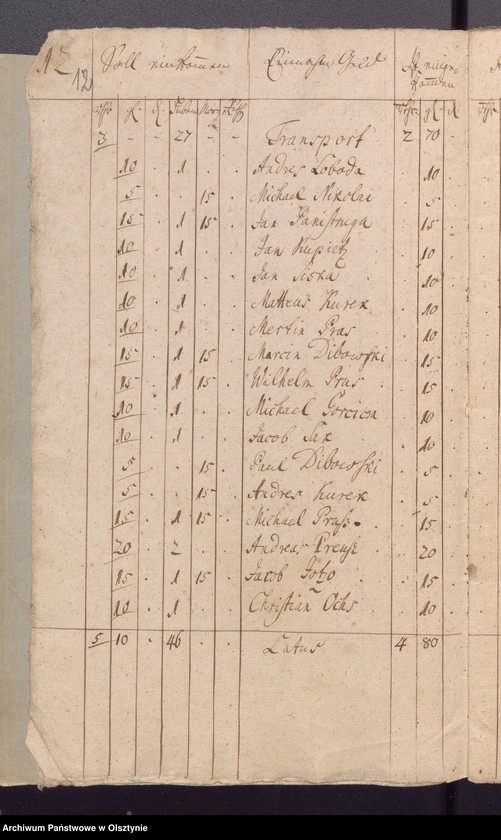 12 Soll einkommen Geld
12
3 - - 27 - - Transport 2 70 -
10 . 1 . . Andres Loboda . 10
5 . . 15 . Michael Nikolai . 5
15 . 1 15 . Jan . 15
10 . 1 . . Jan Kupietz . 10
10 . 1 . . Jan . 10
10 . 1 . . Mattheus Kurek . 10
10 . 1 . . Mertin Pras . 10
15 . 1 15 . Marcin Dibowski . 15
15 . 1 15 . Wilhelm Prus . 15
10 . 1 . . Michael . 10
10 . 1 . . Jacob Sax . 10
5 . . 15 . Paul Dibowski . 5
5 . . 15 . Andres Kurek . 5
15 . 1 15 . Michael Pruß . 15
20 . 2 . . Andreas Preuß . 20
15 . 1 15 . Jacob . 15
10 . 1 . . Christian Ochs . 10
5 10 . 46 . . Latus 4 80
Archiwum Państwowe w Olsztynie